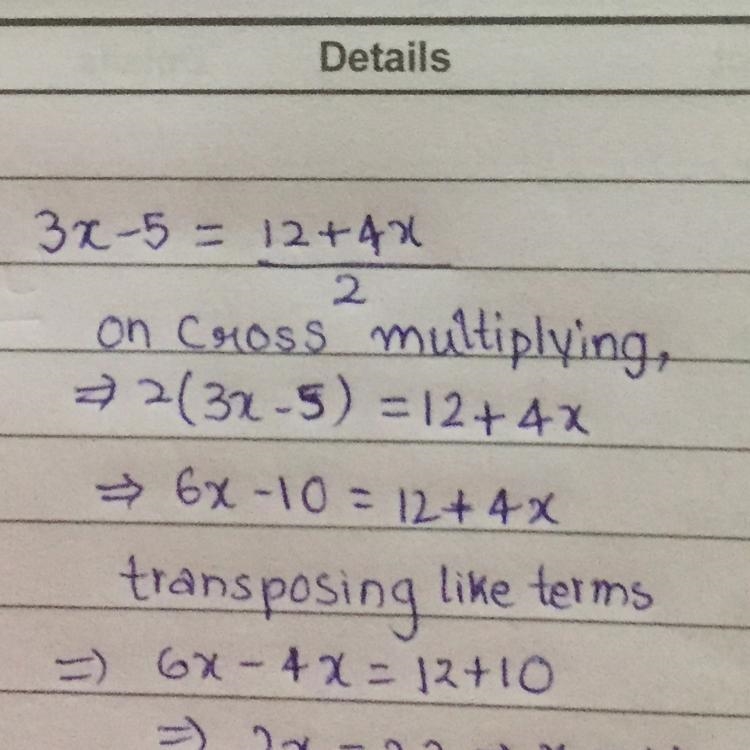 Details
3x-5 = 12+4x
2
on cross multiplying,
⇒ 2(3x-5) = 12+4x
⇒ 6x-10 = 12+4x
transposing like terms
⇒ 6x-4x = 12+10
⇒ 2x = 22